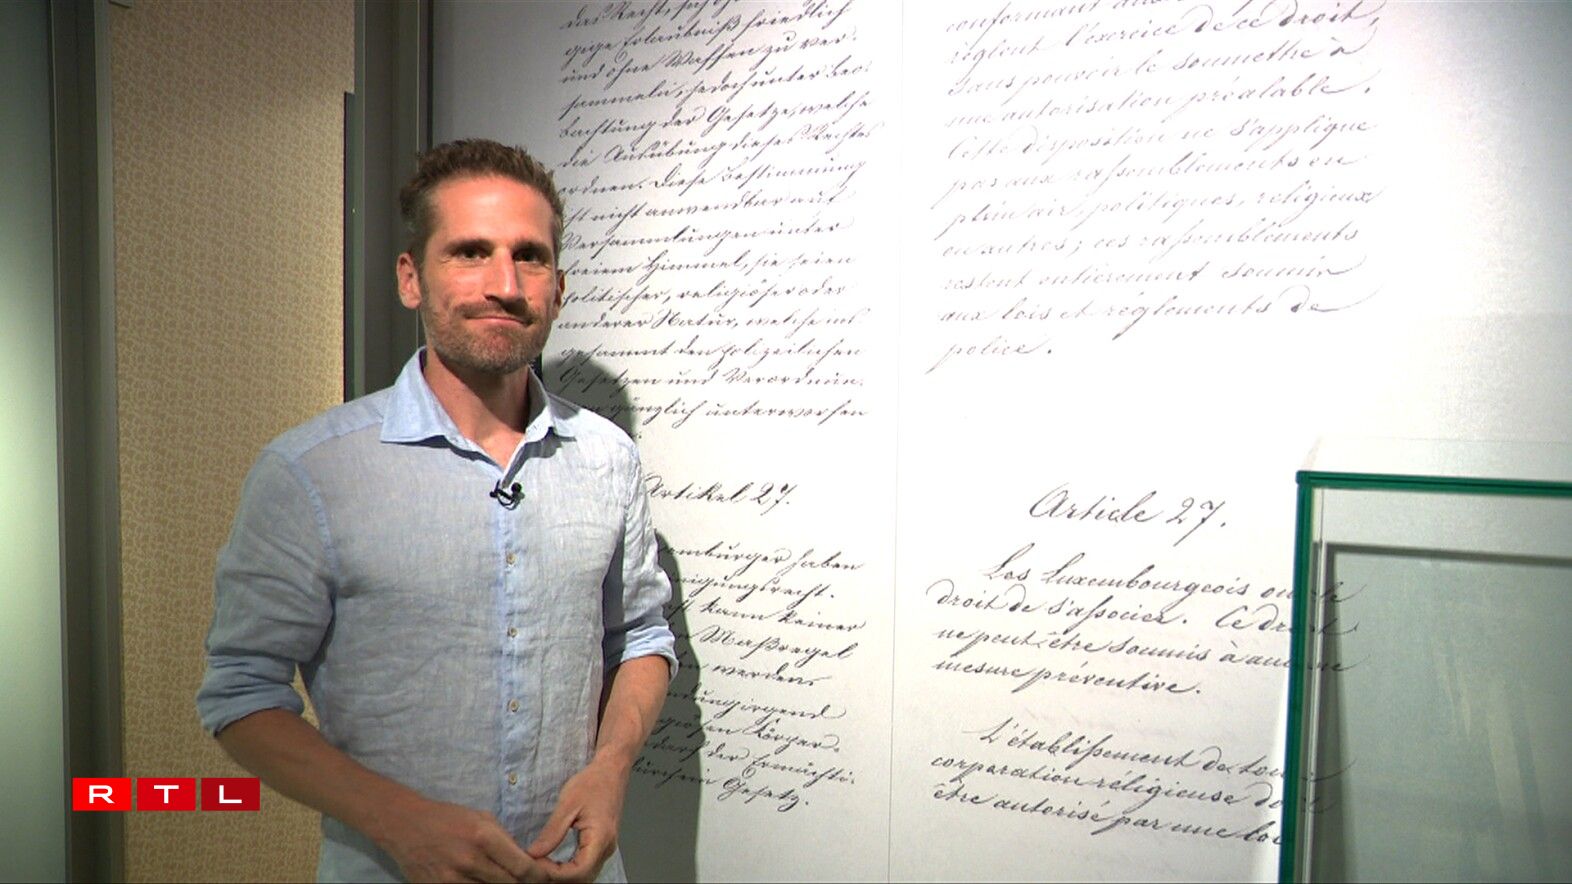 das Recht, sich ohne
gige Erlaubniß friedlich
und ohne Waffen zu ver-
sammeln, jedoch unter Beo-
bachtung der Gesetze, welche
die Ausübung dieses Rechtes
ordnen. Diese Bestimmung
ist nicht anwendbar auf
Versammlungen unter
freiem Himmel, sie seien
politischer, religiöser oder
anderer Natur, welche ins-
gesammt den polizeilichen
Gesetzen und Verordnun-
gen gänzlich unterworfen
Artikel 27.
emburger haben
nigungsrecht.
kann keiner
Maßregel
werden.
ndung irgend
giösen Körper-
darf der Ermächti-
durch ein Gesetz.
conformant aux
règlent l'exercice de ce droit,
sans pouvoir le soumettre à
une autorisation préalable.
Cette disposition ne s'applique
pas aux rassemblements en
plein air, politiques, religieux
ou autres; ces rassemblements
restent entièrement soumis
aux lois et règlements de
police.
Article 27.
Les Luxembourgeois ont le
droit de s'associer. Ce droit
ne peut être soumis à aucune
mesure préventive.
L'établissement de toute
corporation réligieuse doit
être autorisé par une loi
RTL